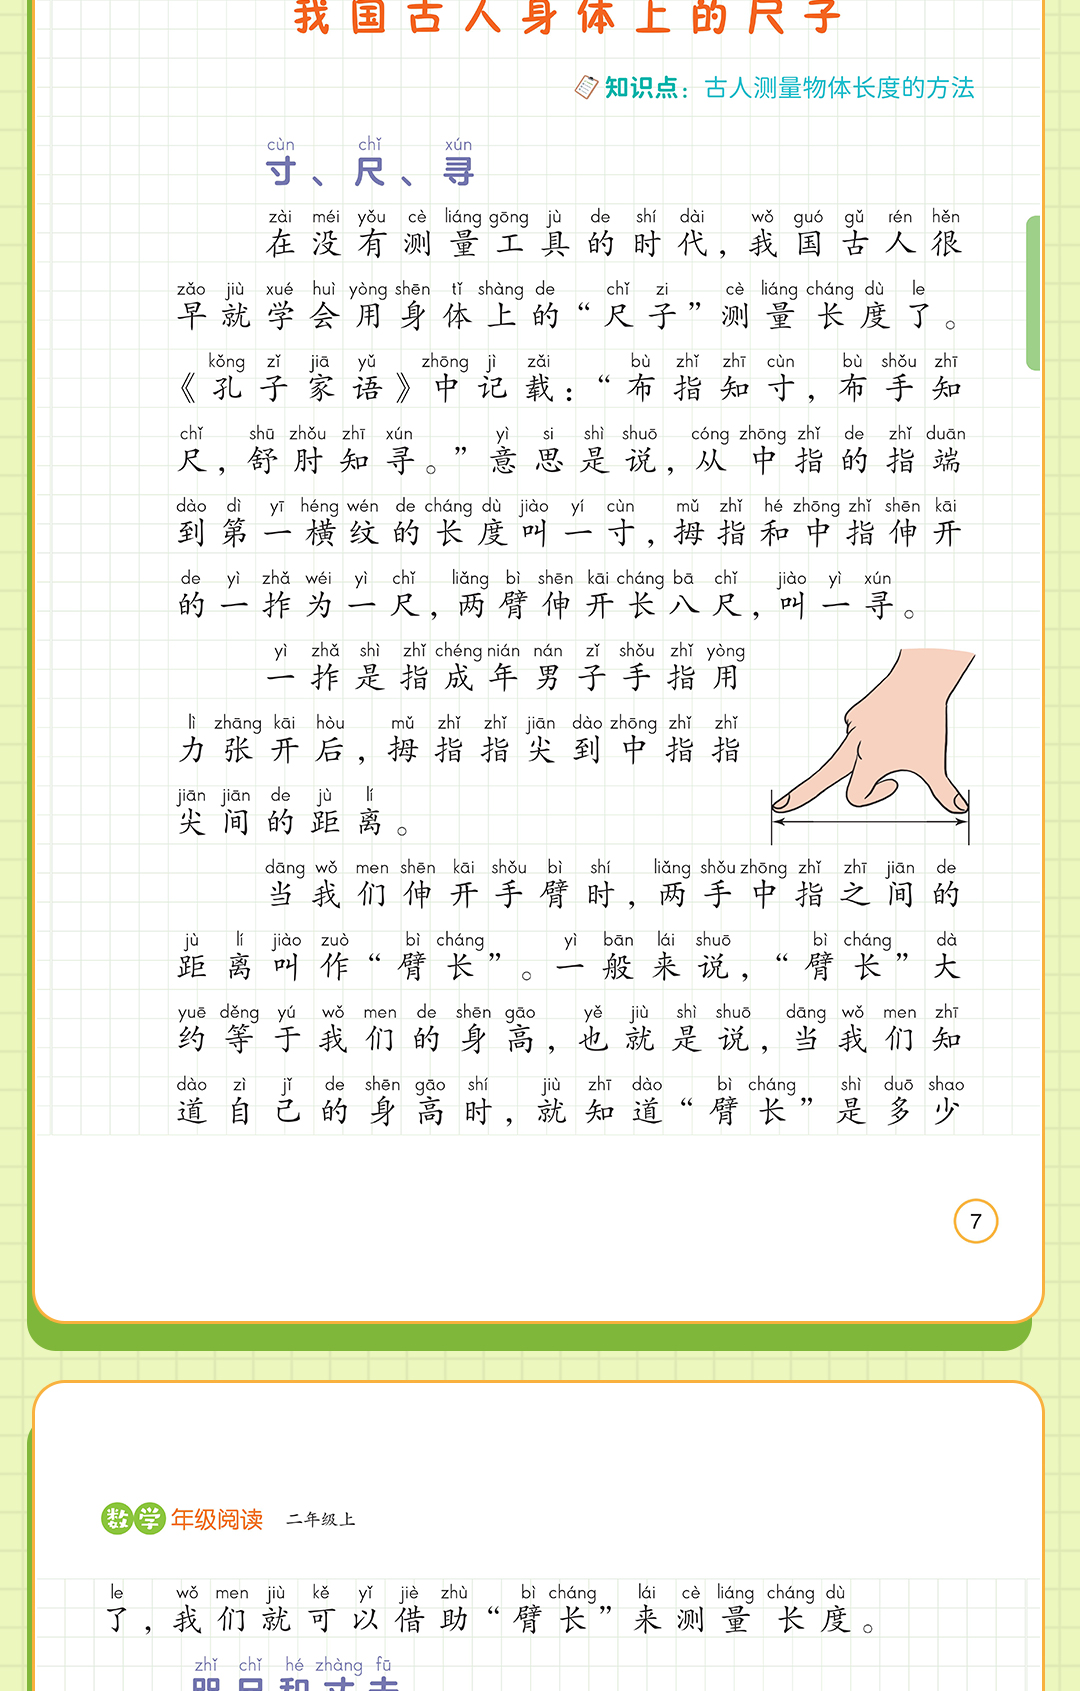 我国古人身体上的尺子
知识点：古人测量物体长度的方法
cùn chǐ xún
寸、尺、寻
zài méi yǒu cè liáng gōng jù de shí dài wǒ guó gǔ rén hěn
在没有测量工具的时代，我国古人很
zǎo jiù xué huì yòng shēn tǐ shàng de chǐ zi cè liáng cháng dù le
早就学会用身体上的“尺子”测量长度了。
kǒng zǐ jiā yǔ zhōng jì zǎi bù zhǐ zhī cùn bù shǒu zhī
《孔子家语》中记载：“布指知寸，布手知
chǐ shū zhǒu zhī xún yì si shì shuō cóng zhōng zhǐ de zhǐ duān
尺，舒肘知寻。”意思是说，从中指的指端
dào dì yī héng wén de cháng dù jiào yí cùn mǔ zhǐ hé zhōng zhǐ shēn kāi
到第一横纹的长度叫一寸，拇指和中指伸开
de yì zhǎ wéi yì chǐ liǎng bì shēn kāi cháng bā chǐ jiào yì xún
的一拃为一尺，两臂伸开长八尺，叫一寻。
yì zhǎ shì zhǐ chéng nián nán zǐ shǒu zhǐ yòng
一拃是指成年男子手指用
lì zhāng kāi hòu mǔ zhǐ zhǐ jiān dào zhōng zhǐ zhǐ
力张开后，拇指指尖到中指指
jiān jiān de jù lí
尖间的距离。
dāng wǒ men shēn kāi shǒu bì shí liǎng shǒu zhōng zhǐ zhī jiān de
当我们伸开手臂时，两手中指之间的
jù lí jiào zuò bì cháng yì bān lái shuō bì cháng dà
距离叫作“臂长”。一般来说，“臂长”大
yuē děng yú wǒ men de shēn gāo yě jiù shì shuō dāng wǒ men zhī
约等于我们的身高，也就是说，当我们知
dào zì jǐ de shēn gāo shí jiù zhī dào bì cháng shì duō shao
道自己的身高时，就知道“臂长”是多少
7
数学年级阅读 二年级上
le wǒ men jiù kě yǐ jiè zhù bì cháng lái cè liáng cháng dù
了，我们就可以借助“臂长”来测量长度。
zhǐ chǐ hé zhàng fū
咫尺和丈夫